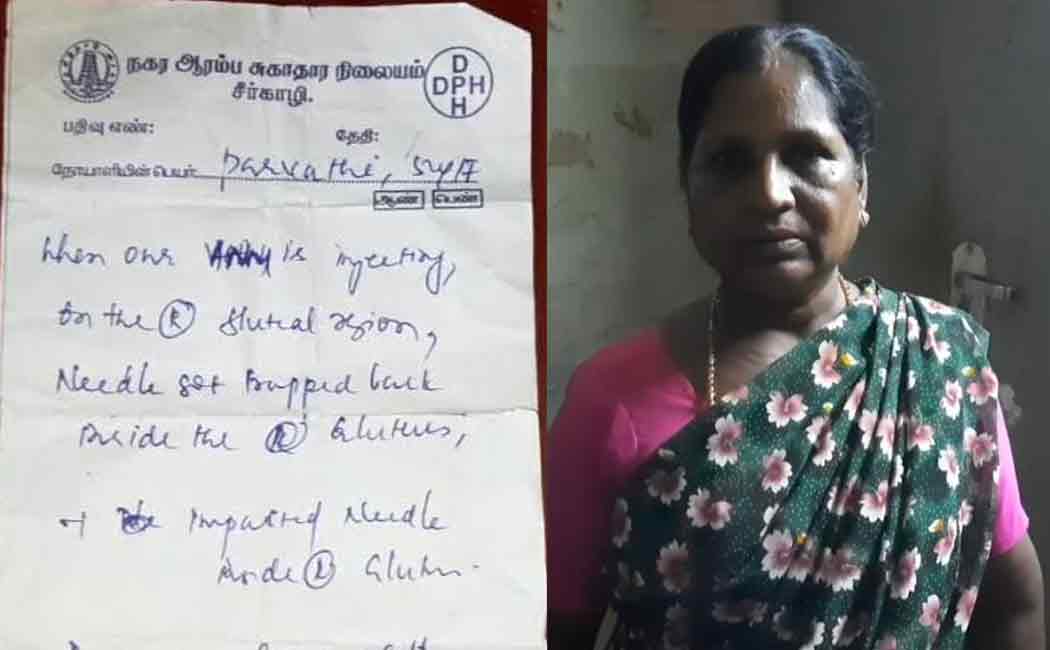 நகர ஆரம்ப சுகாதார நிலையம்
சீர்காழி.
D
DPH
H
பதிவு எண்: தேதி:
நோயாளியின் பெயர் Parvathi, 54/F
ஆண் பெண்
When our is injecting,
on the Ⓡ Gluteal region,
Needle got trapped back
inside the Ⓡ Gluteus,
Impacted Needle
inside Ⓡ Gluteus.